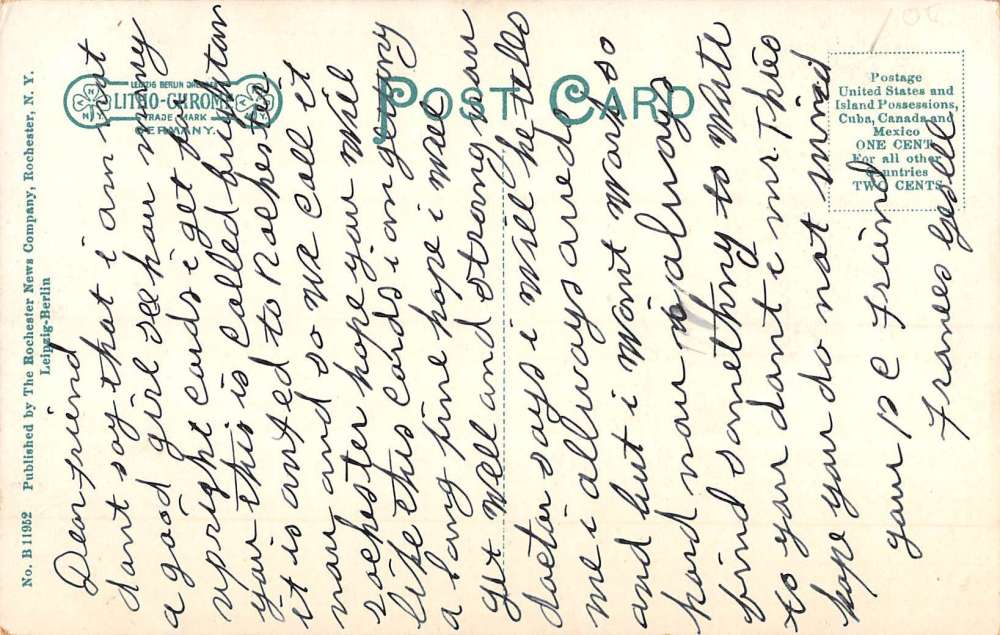 No. B 11952 Published by The Rochester News Company, Rochester, N. Y.
Leipzig-Berlin
LEIPZIG BERLIN DRESDEN
LITHO-CHROME
TRADE MARK
GERMANY.
POST CARD
Postage
United States and
Island Possessions,
Cuba, Canada and
Mexico
ONE CENT
For all other
Countries
TWO CENTS
Dear friend
dont say that i am not
a good girl see how many
upright cards i get for
you this is called brighton
it is anxted to Rochester
now and so we call it
rochester hope you will
like this cards i am getting
a long fine hope i will
get well and strong now
doctor says i will he tells
me i allways are
and but i wont warp so
hard now allways
find something to write
to you dont i mr. Thies
hope you do not mind
your p c Friend
Franses Gesell